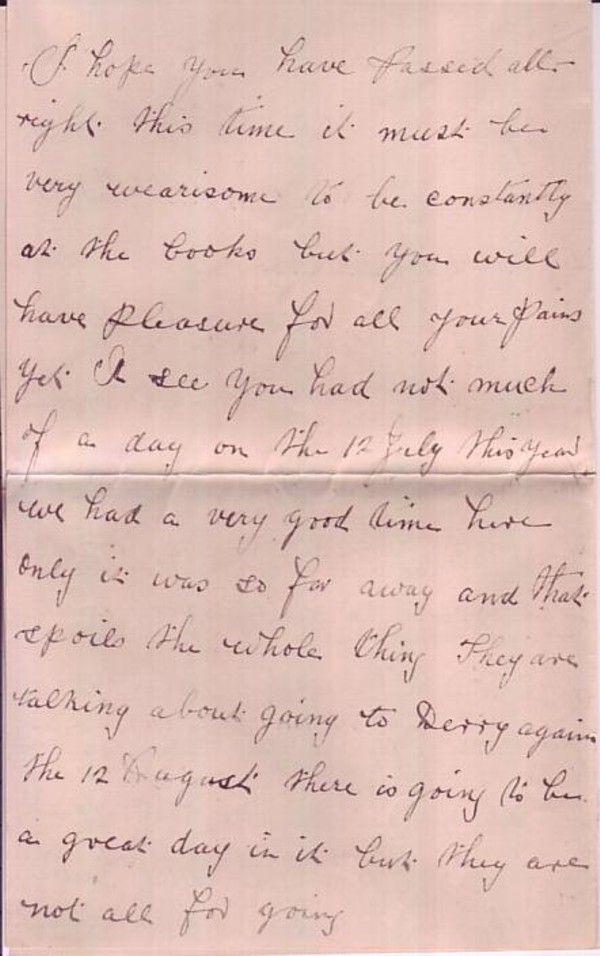 I hope you have passed all
right this time it must be
very wearisome to be constantly
at the books but you will
have pleasure for all your pains
yet I see you had not much
of a day on the 12 July this year
we had a very good time here
only it was so far away and that
spoils the whole thing They are
talking about going to Derry again
the 12 August there is going to be
a great day in it but they are
not all for going